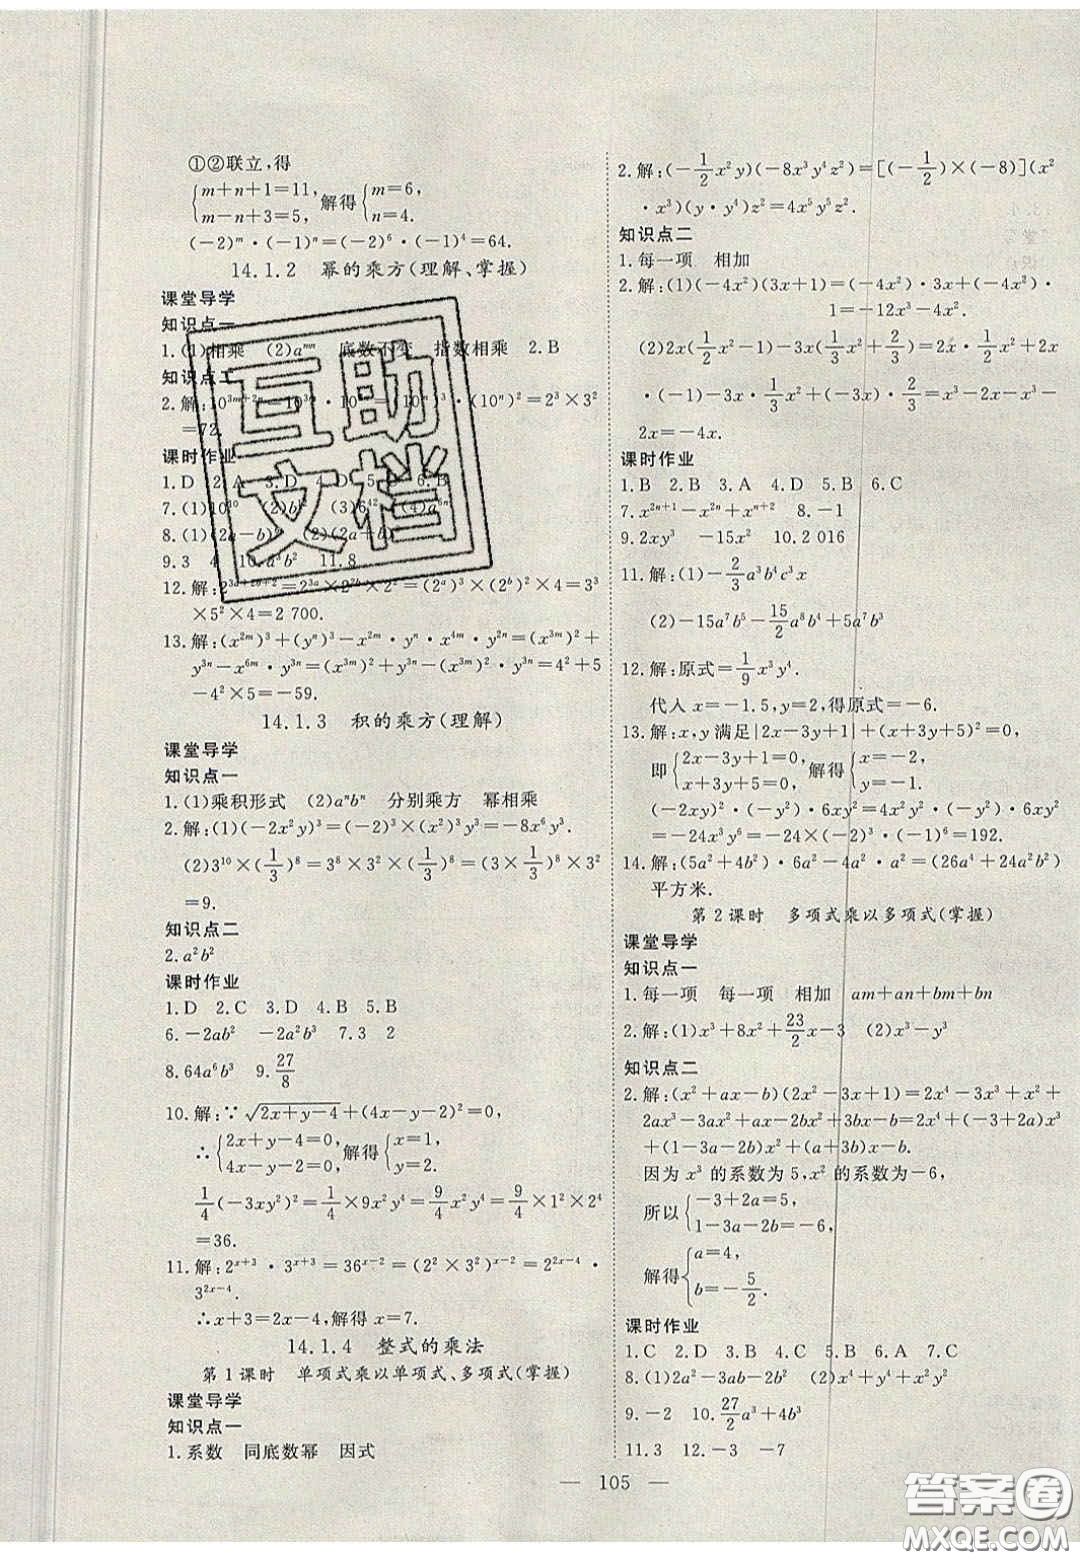 ①②联立,得
{m+n+1=11, m-n+3=5, 解得{m=6, n=4.
(-2)ᵐ·(-1)ⁿ=(-2)⁶·(-1)⁴=64.
14.1.2 幂的乘方(理解、掌握)
课堂导学
知识点一
1.(1)相乘 (2)aᵐⁿ 底数不变 指数相乘 2.B
知识点二
2.解:10³ᵐ⁺²ⁿ=10³ᵐ·10²ⁿ=(10ᵐ)³·(10ⁿ)²=2³×3²
=72.
课时作业
1.D 2.A 3.D 4.D 5.D 6.B
7.(1)10³⁰ (2)b⁶ (3)6⁴² (4)a⁶ᵐ
8.(1)(2a-b) (2)(2a+b)
9.3 4 10.a³b² 11.8
12.解:2³ᵃ⁺²ᵇ⁺²=2³ᵃ×2²ᵇ×2²=(2ᵃ)³×(2ᵇ)²×2²=3³
×5²×4=2 700.
13.解:(x²ᵐ)³+(yⁿ)³-x²ᵐ·yⁿ·x⁴ᵐ·y²ⁿ=(x³ᵐ)²+
y³ⁿ-x⁶ᵐ·y³ⁿ=(x³ᵐ)²+y³ⁿ-(x³ᵐ)²×y³ⁿ=4²+5
-4²×5=-59.
14.1.3 积的乘方(理解)
课堂导学
知识点一
1.(1)乘积形式 (2)aⁿbⁿ 分别乘方 幂相乘
2.解:(1)(-2x²y)³=(-2)³×(x²)³y³=-8x⁶y³.
(2)3¹⁰×(1/3)⁸=3⁸×3²×(1/3)⁸=(3×1/3)⁸×3²
=9.
知识点二
2.a²b²
课时作业
1.D 2.C 3.D 4.B 5.B
6.-2ab² -2a²b² 7.3 2
8.64a⁶b³ 9.27/8
10.解:∵√(2x+y-4)+(4x-y-2)²=0,
∴{2x+y-4=0, 4x-y-2=0, 解得{x=1, y=2.
1/4(-3xy²)²=1/4×9x²y⁴=9/4x²y⁴=9/4×1×2⁴
=36.
11.解:2ˣ⁺³·3ˣ⁺³=36ˣ⁻²=(2²×3²)ˣ⁻²=2²ˣ⁻⁴·
3²ˣ⁻⁴.
∴x+3=2x-4,解得x=7.
14.1.4 整式的乘法
第1课时 单项式乘以单项式、多项式(掌握)
课堂导学
知识点一
1.系数 同底数幂 因式
2.解:(-1/2x²y)(-8x³y⁴z²)=[(-1/2)×(-8)](x²
·x³)(y·y⁴)z²=4x⁵y⁵z².
知识点二
1.每一项 相加
2.解:(1)(-4x²)(3x+1)=(-4x²)·3x+(-4x²)·
1=-12x³-4x².
(2)2x(1/2x²-1)-3x(1/3x²+1)=2x·1/2x²+2x
·(-1)-3x·1/3x²+(-3x)·1=x³-2x-x³-
2x=-4x.
课时作业
1.B 2.B 3.A 4.D 5.B 6.C
7.x²ⁿ⁺¹-x²ⁿ+xⁿ⁺² 8.-1
9.2xy³ -15x² 10.2 016
11.解:(1)-2/3a³b⁴c³x
(2)-15a⁷b⁵-15/2a⁵b⁴+5a⁷b³
12.解:原式=1/9x³y⁴.
代入x=-1.5,y=2,得原式=-6.
13.解:x,y满足|2x-3y+1|+(x+3y+5)²=0,
即{2x-3y+1=0, x+3y+5=0, 解得{x=-2, y=-1.
(-2xy)²·(-y²)·6xy²=4x²y²·(-y²)·6xy²
=-24x³y⁶=-24×(-2)³×(-1)⁶=192.
14.解:(5a²+4b²)·6a²-4a²·a²=(26a⁴+24a²b²)
平方米.
第2课时 多项式乘以多项式(掌握)
课堂导学
知识点一
1.每一项 每一项 相加 am+an+bm+bn
2.解:(1)x³+8x²+23/2x-3 (2)x³-y³
知识点二
2.解:(x²+ax-b)(2x²-3x+1)=2x⁴-3x³+x²+
2ax³-3ax²+ax-2bx²+3bx-b=2x⁴+(-3+2a)x³
+(1-3a-2b)x²+(a+3b)x-b.
因为x³的系数为5,x²的系数为-6,
所以{-3+2a=5, 1-3a-2b=-6,
解得{a=4, b=-5/2.
课时作业
1.C 2.D 3.D 4.B 5.B 6.A 7.C
8.(1)2a²-3ab-2b² (2)x⁴+y⁴+x²y²
9.-2 10.27/2a³+4b³
11.3 12.-3 -7
— 105 —
互助
文档
答案圈
MXQE.COM